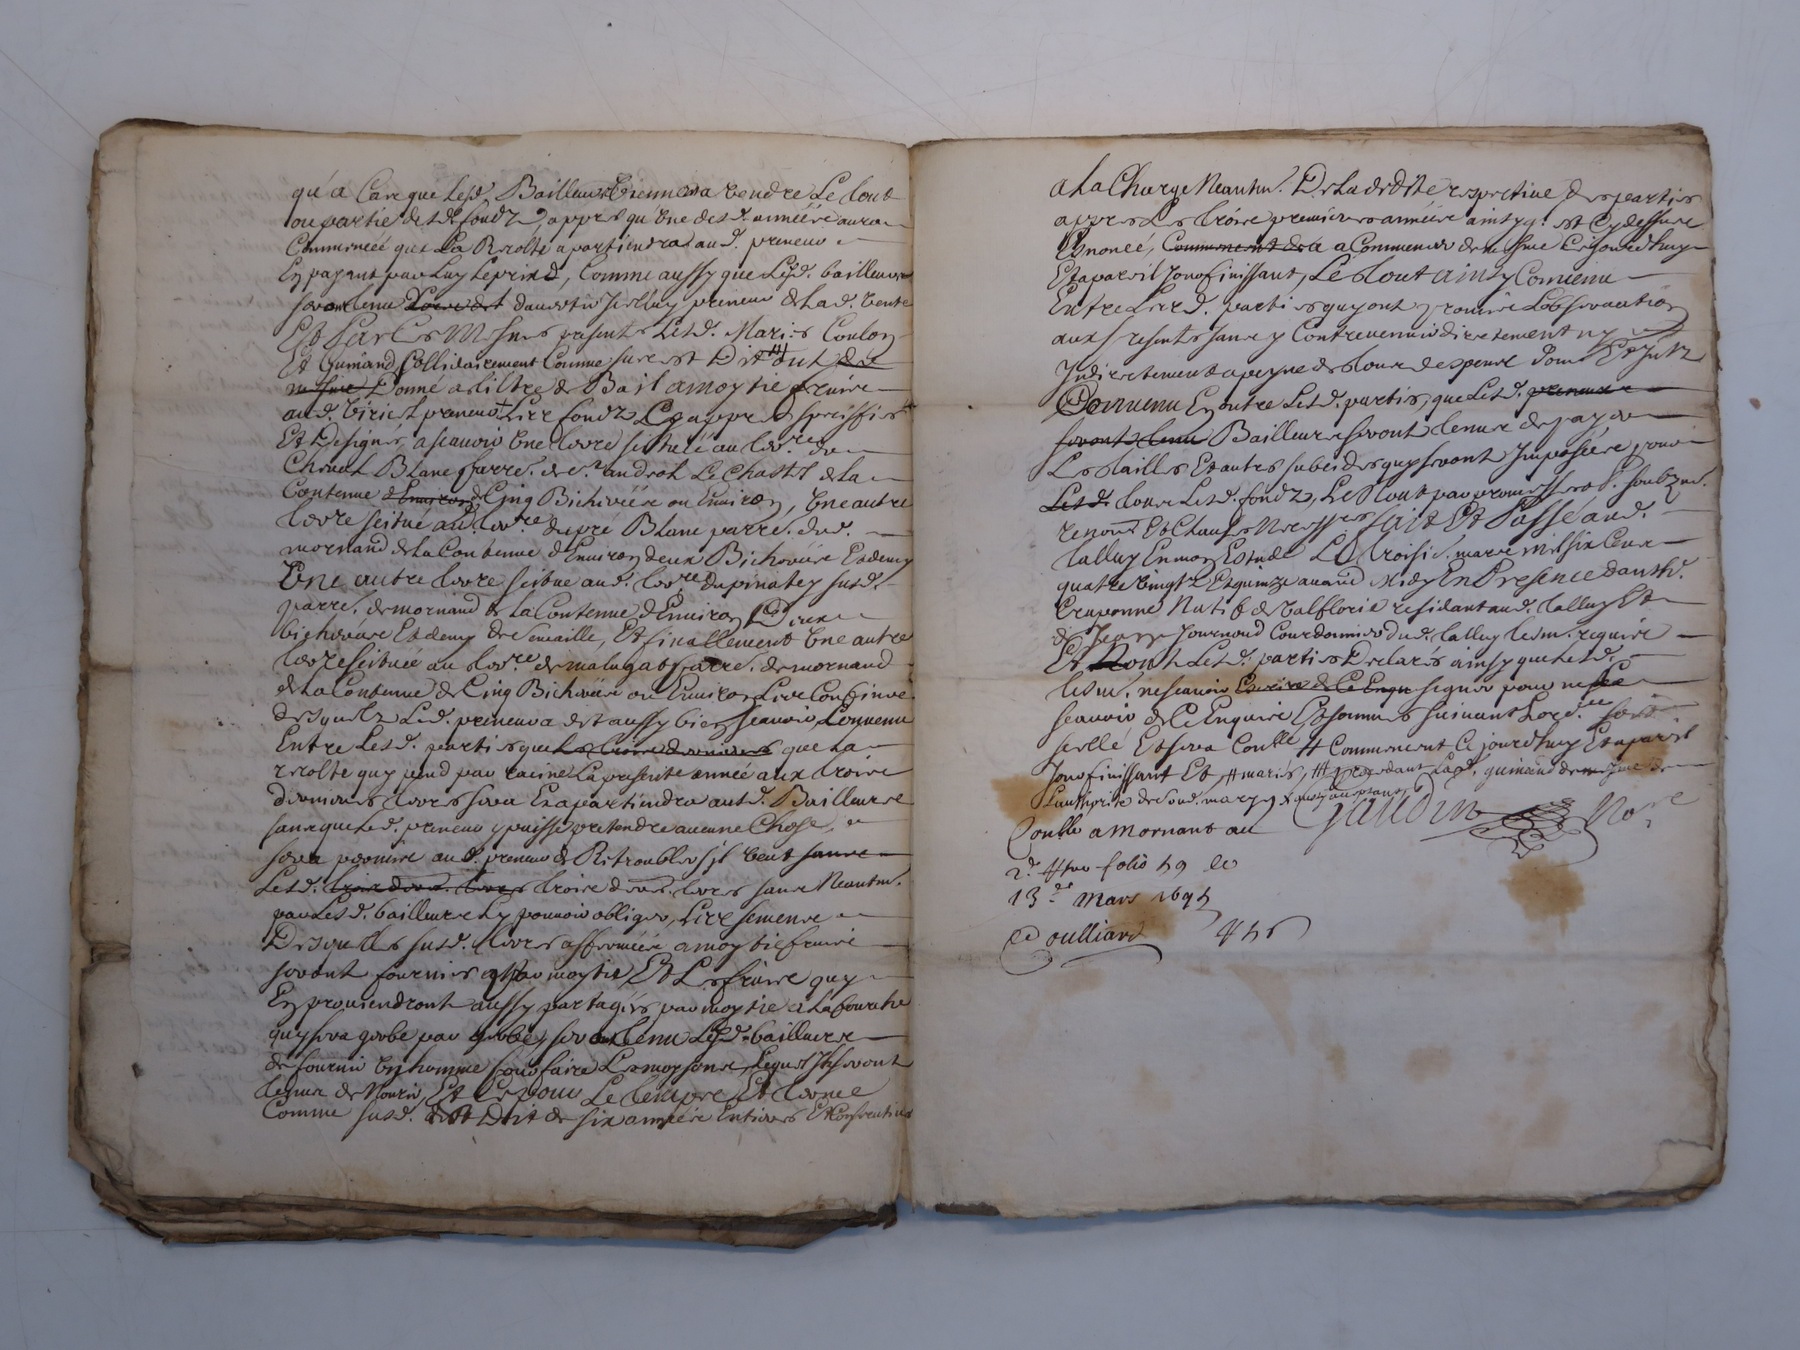 qu'a Cas que lesd. Bailleurs Viennent a vendre Le tout
ou partie desd. fondz, appres qu'une desd. années aura
Commencée que La Recolte apartiendra aud. preneur
En payant par Luy Le prix d, Comme aussy que Lesd. bailleurs
seront tenu d'advertir Icelluy preneur de Lad. vente
Et par Ces Mesmes presentes Lesd. Mariés Coulon
Et Guinand sollidairement Comme sus est Dit ont
Donné a tiltre de Bail a moytié fruis
aud. Viriel preneur Les fondz Cy appres speciffies
Et Designés, a scavoir Une terre scituée au terre. du
Chirat Blanc parre. de st. andeol Le Chastel de la
Contenue de Cinq Bicherées ou Environ, Une autre
terre scitué aud. terre. dupre Blanc parre. dud.
mornand de la Contenue d'Environ deux Bicherées Et demy
Une autre terre scitué aud. terre. du pinatey susd.
parre. de mornand de la Contenue d'Environ Deux
bicherées Et demy de Semaille, Et finallement Une autre
terre scituée au terre. de malagat parre. de mornand
de La Contenue de Cinq Bicherées ou Environ Les Confins
desquelz Led. preneur a dit aussy bien scavoir, Convenu
Entre Lesd. parties que les trois dernieres que La
recolte quy pend par racine La presente année aux trois
dernieres terres sera Et apartiendra ausd. Bailleurs
sans que Led. preneur y puisse pretendre aucune Chose,
sera permis aud. preneur de Retroubler s'il veut
Lesd. trois dern. terres sans Neantm.
par Lesd. bailleurs L'y pouvoir obliger, Les semence
Desquelles susd. terres affermées a moytié fruis
seront fournies par moytié Et Les fruis quy
En proviendront aussy partagés par moytié a La Coutume
quy sera gerbe par gerbe, seront tenu Lesd. bailleurs
de fournir Un homme pour faire Les moyssons, Lequel Ils seront
tenus de Nourir, Et Ce pour Le temps Et terme
Comme susd. Est Dit de six années Entieres Et Consecutives
a La Charge Neantm. De La dedite respective des parties
appres Les trois premieres années ainsy q. est Cy dessus
Enoncé, a Commencer de mesme Ce jourdhuy
Et a pareil Jour finissant, Le tout ainsy Convenu
Entre Lesd. parties quy ont promis L'observation
aux presentes sans y Contrevenir directement ny
Indirectement a peyne de tous despens Dom. Et Intz
Convenu En outre Lesd. parties, que Lesd. preneur
seront tenu Bailleurs seront tenus de payer
Les tailles Et autres subcides quy seront Imposées pour
tous Lesd. fondz, Le tout par promesses s. soubzm.
renonc. Et Clauses Necesseres fait Et Passé aud.
talluy En mon Estude Le troisie. mars mil six Cens
quatre vingtz Et quinze avant Midy En Presence d'anth.
Craponne Natif de Valfleurie residant aud. talluy Et
de Jean Journoud Courdonnier dud. talluy tesm. requis
Et Lesd. parties Declarés ainsy que Lesd.
tesm. ne scavoir signer pour ne
scavoir de Ce Enquis Et sommes suivant L'ord.ce
scellé Et sera Conllé # Commencent Ce jourdhuy Et a pareil
Jour finissant Et # mariés, # procedant Lad. guinand de
L'authorité de Sond. mary
Gaudin No.re
Conllé a Mornant au
2.d # folio 59 le
13.e Mars 1695
Coulliard